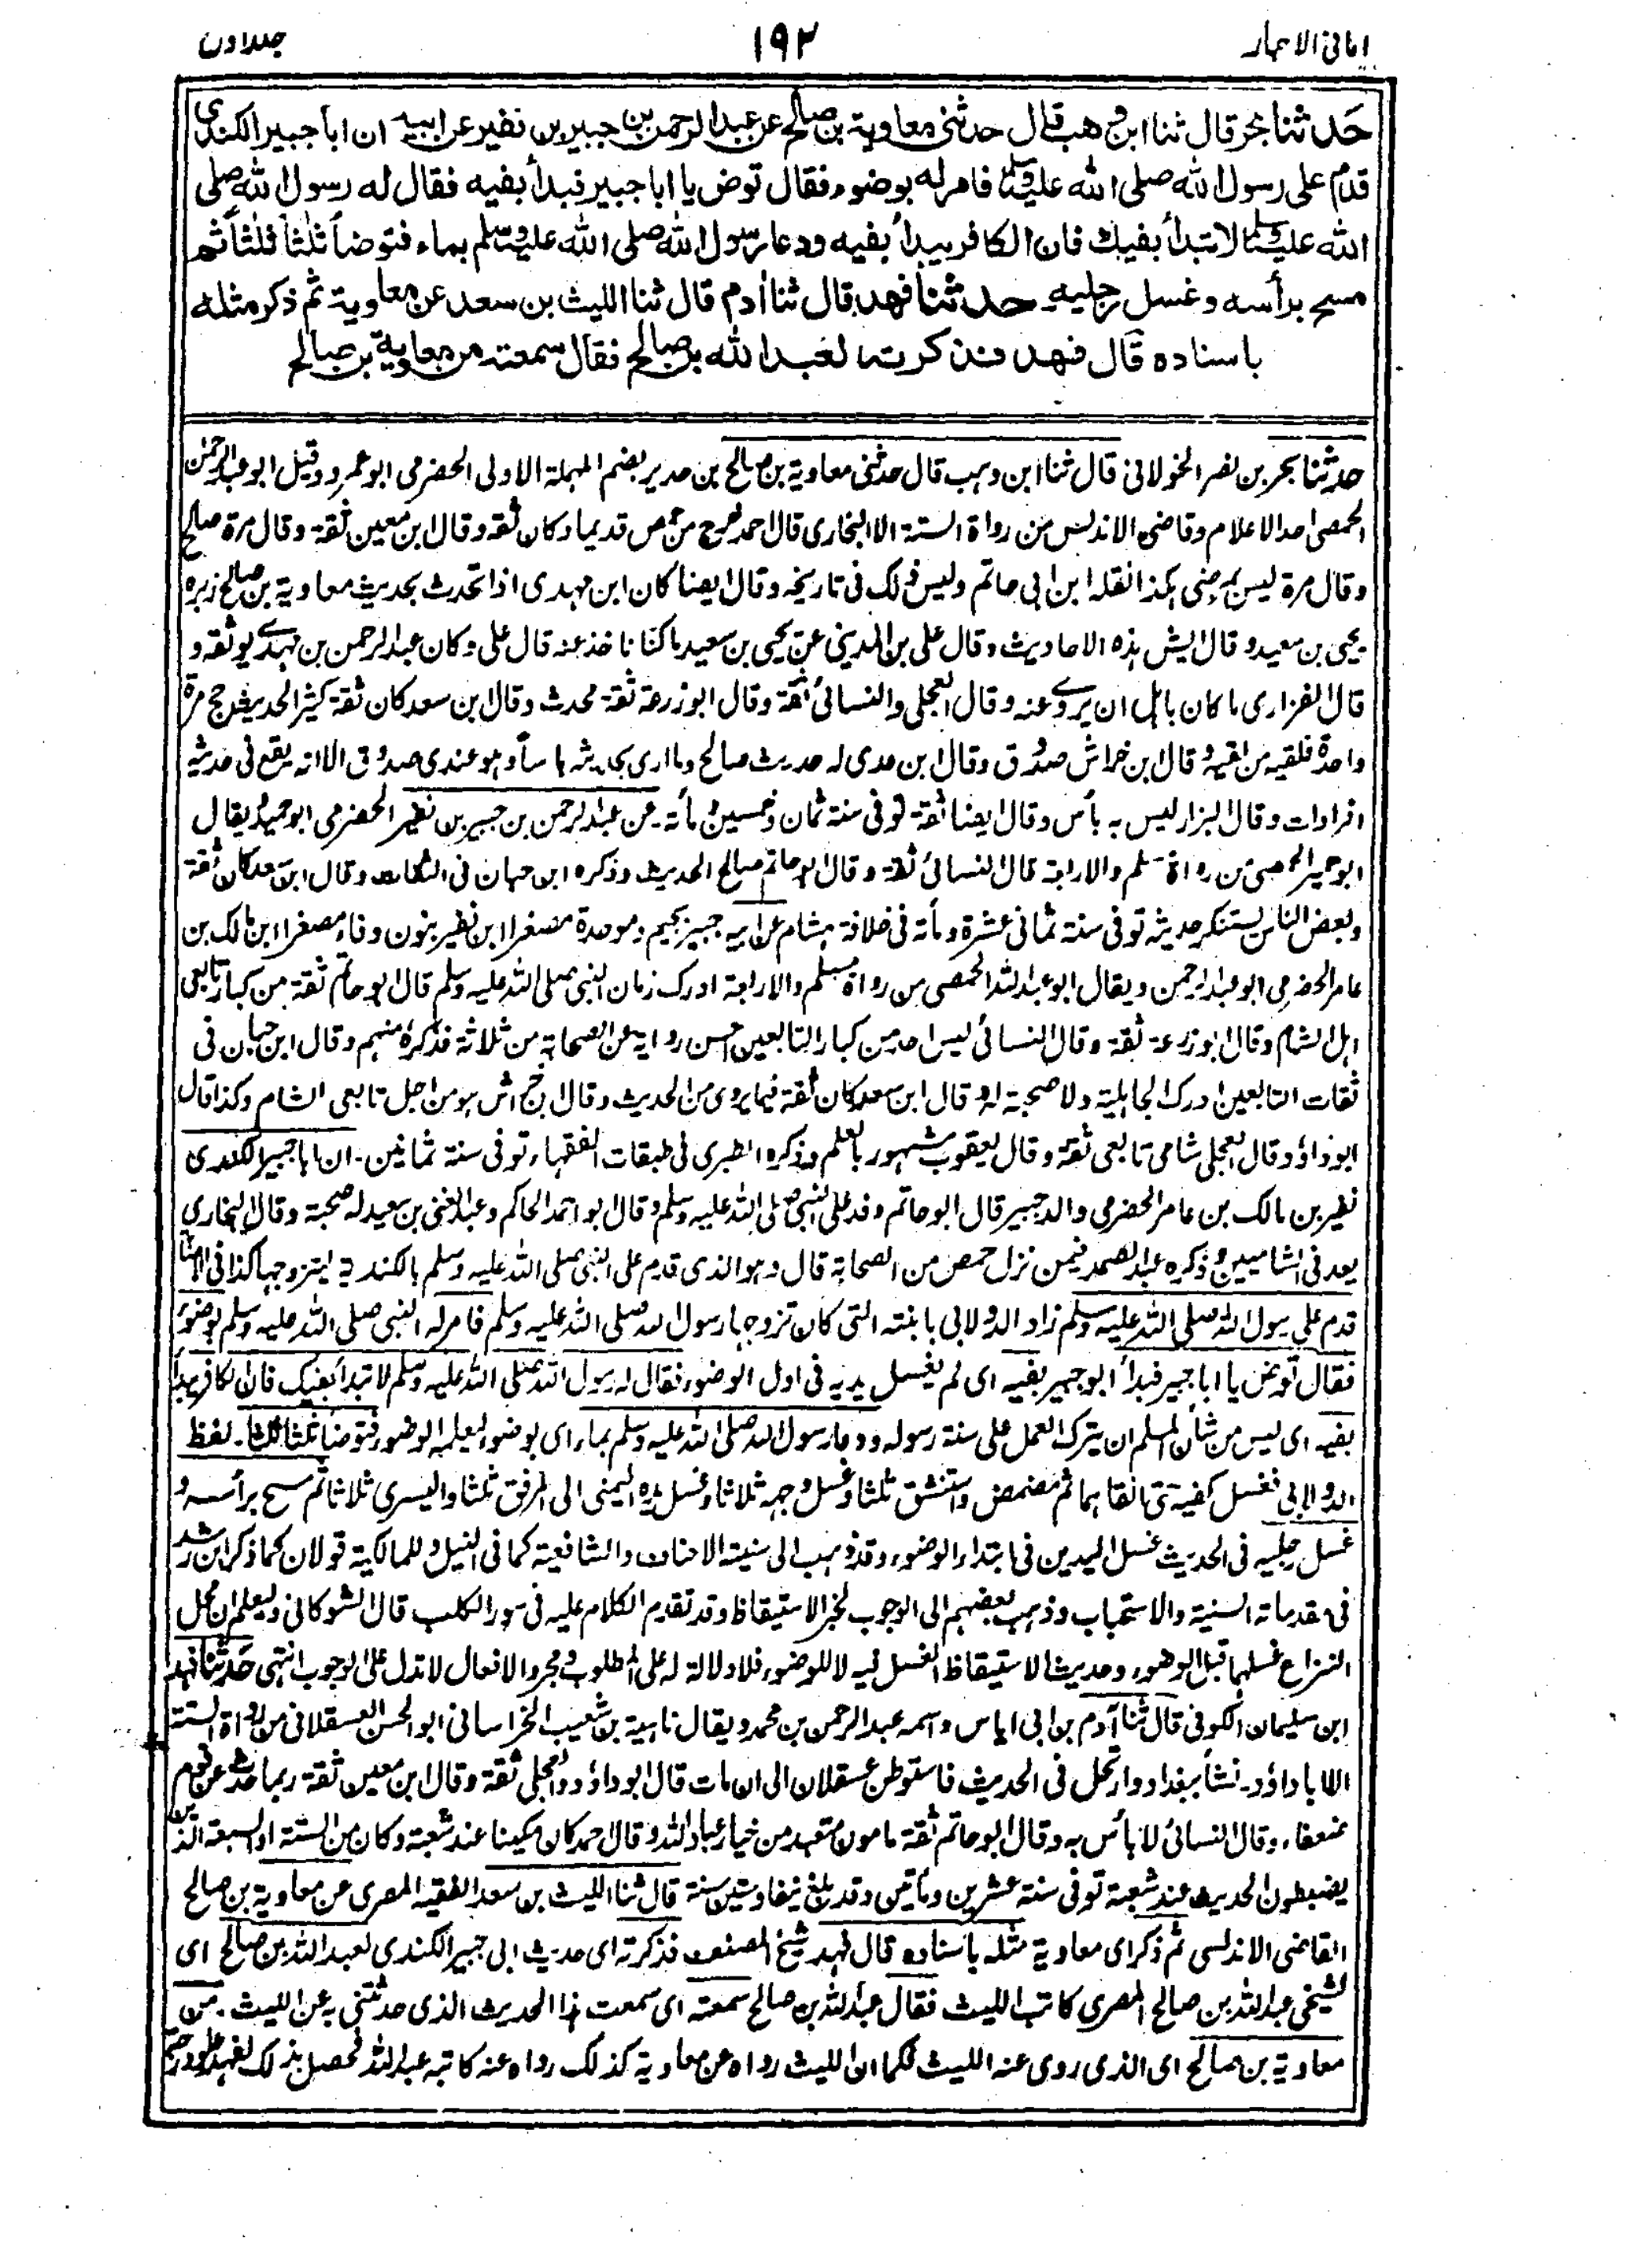 امانی الاحبار ۱۹۲ جلد اول
حدثنا بحر قال ثنا ابن وهب قال حدثنی معاویة بن صالح عن عبد الرحمن بن جبیر بن نفیر عن ابیه ان ابا جبیر الکندی
قدم علی رسول الله صلی الله علیه وسلم فامر له بوضوء فقال توض یا ابا جبیر فبدأ بفیه فقال له رسول الله صلی
الله علیه وسلم لا تبدأ بفیك فان الکافر یبدأ بفیه ودعا رسول الله صلی الله علیه وسلم بماء فتوضأ ثلثا ثلثا ثم
مسح برأسه وغسل رجلیه حدثنا فهد قال ثنا اٰدم قال ثنا اللیث بن سعد عن معاویة ثم ذکر مثله
باسناده قال فهد فذکرته لعبد الله بن صالح فقال سمعته من معاویة بن صالح
حدثنا بحر بن نصر الخولانی قال ثنا ابن وہب قال حدثنی معاویة بن صالح بن حدیر بضم المہملة الاولی الحضرمی ابو عمرو وقیل ابو عبد الرحمٰن
الحمصی احد الاعلام وقاضی الاندلس من رواة الستة الا البخاری قال احمد خرج من حمص قدیما وکان ثقة وقال ابن معین ثقة وقال مرة صالح
وقال مرة لیس بمرضی ہکذا نقلہ ابن ابی حاتم ولیس ذلک فی تاریخہ وقال ایضا کان ابن مہدی اذا تحدث بحدیث معاویة بن صالح زبرہ
یحیی بن سعید وقال ایش ہذہ الاحادیث وقال علی بن المدینی عن یحیی بن سعید ما کنا ناخذ عنہ قال علی وکان عبد الرحمن بن مہدی یوثقہ و
قال الفزاری ما کان باہل ان یروی عنہ وقال العجلی والنسائی ثقة وقال ابو زرعة ثقة محدث وقال ابن سعد کان ثقة کثیر الحدیث حج مرة
واحدة فلقیہ من لقیہ وقال ابن خراش صدوق وقال ابن عدی لہ حدیث صالح وما اری بحدیثہ باسا وہو عندی صدوق الا انہ یقع فی حدیثہ
افرادات وقال البزار لیس بہ بأس وقال ایضا ثقة توفی سنة ثمان وخمسین ومأة۔ عن عبد الرحمن بن جبیر بن نفیر الحضرمی ابو حمید ویقال
ابو حمیر الحمصی من رواة مسلم والاربعة قال النسائی ثقة وقال ابو حاتم صالح الحدیث وذکرہ ابن حبان فی الثقات وقال ابن سعد کان ثقة
وبعض الناس یستنکر حدیثہ توفی سنة ثمانی عشرة ومأة فی خلافة ہشام عن ابیہ جبیر بجیم وموحدة مصغرا ابن نفیر بنون وفاء مصغرا ابن مالک بن
عامر الحضرمی ابو عبد الرحمن ویقال ابو عبد اللہ الحمصی من رواة مسلم والاربعة ادرک زمان النبی صلی اللہ علیہ وسلم قال ابو حاتم ثقة من کبار تابعی
اہل الشام وقال ابو زرعة ثقة وقال النسائی لیس احد من کبار التابعین احسن روایة عن الصحابة من ثلاثة فذکرہ منہم وقال ابن حبان فی
ثقات التابعین ادرک الجاہلیة ولا صحبة لہ وقال ابن سعد کان ثقة فیما یروی من الحدیث وقال ابن خراش ہو من اجل تابعی الشام وکذا قال
ابو داؤد وقال العجلی شامی تابعی ثقة وقال یعقوب مشہور بالعلم وذکرہ الطبری فی طبقات الفقہاء توفی سنة ثمانین۔ ان ابا جبیر الکندی
نفیر بن مالک بن عامر الحضرمی والد جبیر قال ابو حاتم وفد علی النبی صلی اللہ علیہ وسلم وقال ابو احمد الحاکم وعبد الغنی بن سعید لہ صحبة وقال البخاری
یعد فی الشامیین وذکرہ عبد الصمد فیمن نزل حمص من الصحابة قال وہو الذی قدم علی النبی صلی اللہ علیہ وسلم بالکندیة لیتزوجہا کذا فی
قدم علی رسول اللہ صلی اللہ علیہ وسلم زاد الدولابی بابنتہ التی کان تزوجہا رسول اللہ صلی اللہ علیہ وسلم فامر لہ النبی صلی اللہ علیہ وسلم بوضوء
فقال توض یا ابا جبیر فبدأ ابو جبیر بفیہ ای لم یغسل یدیہ فی اول الوضوء فقال لہ رسول اللہ صلی اللہ علیہ وسلم لا تبدأ بفیک فان الکافر یبدأ
بفیہ ای لیس من شأن المسلم ان یترک العمل علی سنة رسولہ ودعا رسول اللہ صلی اللہ علیہ وسلم بماء ای بوضوء لیعلمہ الوضوء فتوضأ ثلثا ثلثا۔ لفظ
الدولابی فغسل کفیہ حتی انقاہما ثم مضمض واستنشق ثلثا وغسل وجہہ ثلاثا وغسل یدہ الیمنی الی المرفق ثلثا والیسری ثلاثا ثم مسح برأسہ و
غسل رجلیہ فی الحدیث غسل الیدین فی ابتداء الوضوء وقد ذہب الی سنیتہ الاحناف والشافعیة کما فی النیل وللمالکیة قولان کما ذکر ابن رشد
فی مقدماتہ السنیة والاستحباب وذہب بعضہم الی الوجوب لخبر الاستیقاظ وقد تقدم الکلام علیہ فی سور الکلب قال الشوکانی ولیعلم ان محل
النزاع غسلہما قبل الوضوء وحدیث الاستیقاظ الغسل فیہ لا للوضوء فلا دلالة لہ علی المطلوب ومجرد الافعال لا تدل علی الوجوب انتہی حدثنا فہد
ابن سلیمان الکوفی قال ثنا آدم بن ابی ایاس واسمہ عبد الرحمن بن محمد ویقال ناہیة بن شعیب الخراسانی ابو الحسن العسقلانی من رواة الستة
الا ابا داؤد۔ نشأ ببغداد وارتحل فی الحدیث فاستوطن عسقلان الی ان مات قال ابو داؤد والعجلی ثقة وقال ابن معین ثقة ربما حدث عن قوم
ضعفاء وقال النسائی لا بأس بہ وقال ابو حاتم ثقة مامون متعبد من خیار عباد اللہ وقال احمد کان مکینا عند شعبة وکان من الستة او السبعة الذین
یضبطون الحدیث عند شعبة توفی سنة عشرین ومأتین وقد بلغ نیفا وتسعین سنة قال ثنا اللیث بن سعد الفقیہ المصری عن معاویة بن صالح
القاضی الاندلسی ثم ذکر ای معاویة مثلہ باسنادہ قال فہد شیخ المصنف فذکرتہ ای حدیث ابی جبیر الکندی لعبد اللہ بن صالح ای
لشیخی عبد اللہ بن صالح المصری کاتب اللیث فقال عبد اللہ بن صالح سمعتہ ای سمعت ہذا الحدیث الذی حدثتنی بہ عن اللیث۔ من
معاویة بن صالح ای الذی روی عنہ اللیث فکما ان اللیث رواہ عن معاویة کذلک رواہ عنہ کاتبہ عبد اللہ فحصل بذلک لفہد